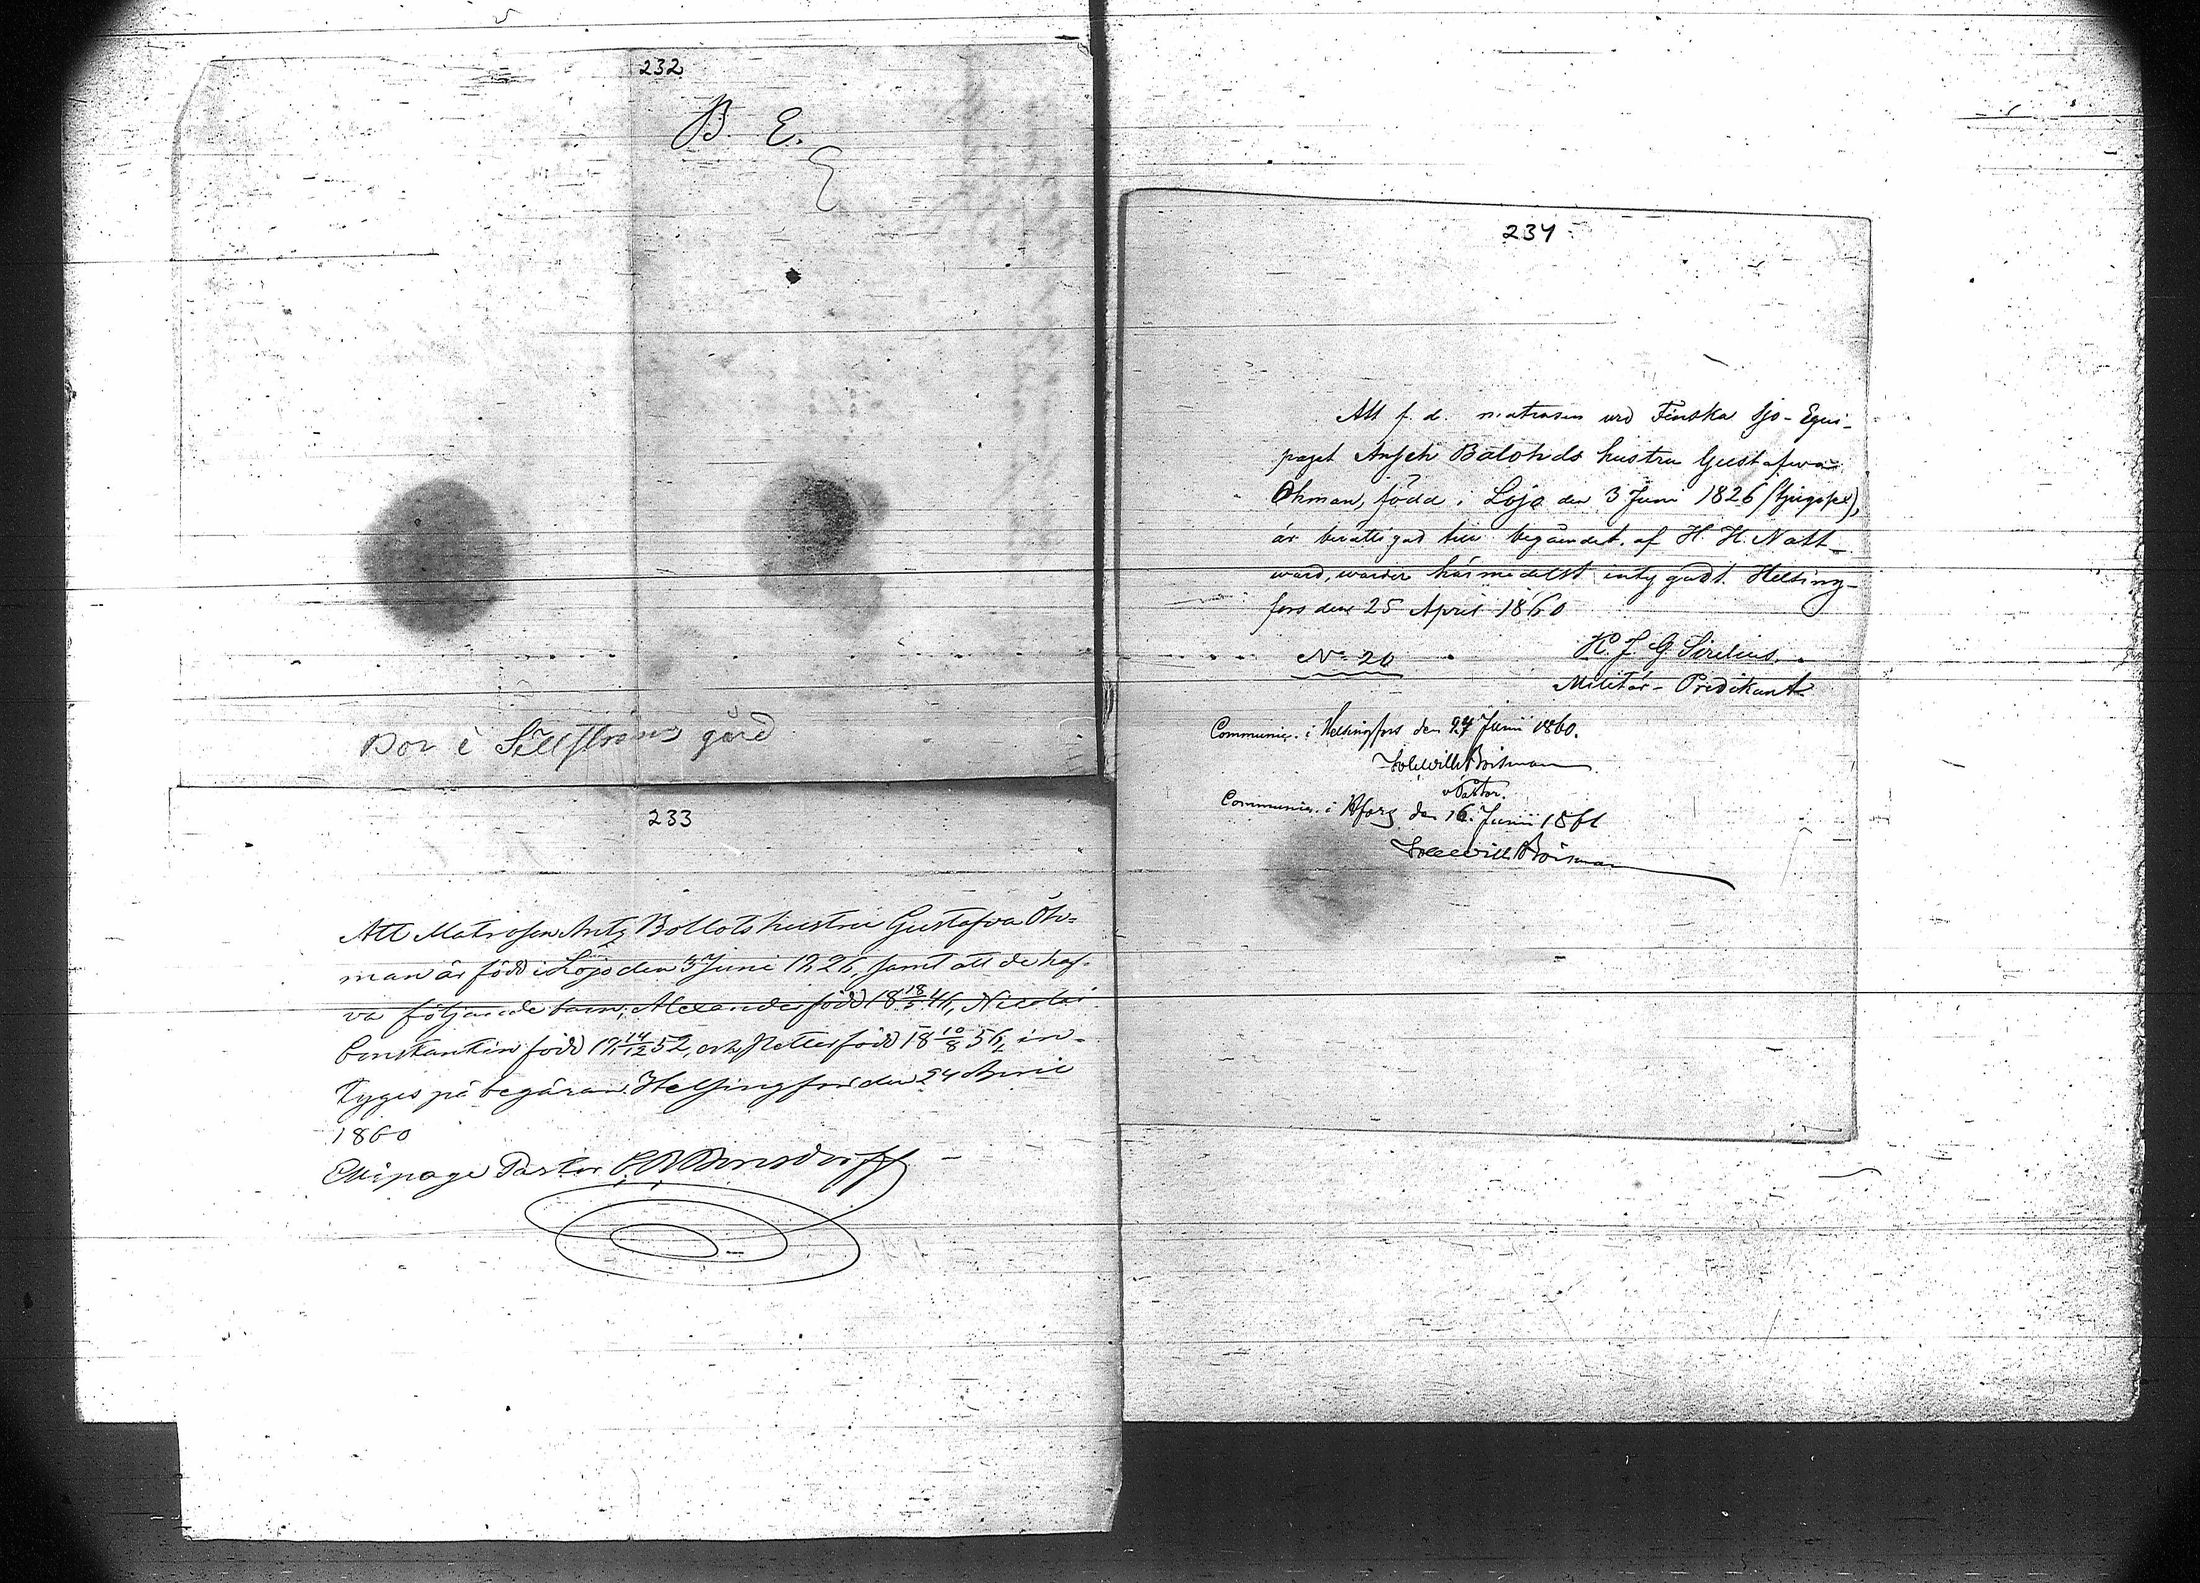 232
B. E.
E
Bor i Sillströms gård
233
Att Matrosen Antz Bollots hustru Gustafva Öh-
man är född i Lojo den 3 Juni 1826, samt att de haf-
va följande barn; Alexander född 18 18/5 46, Nicolai
Constantin född 18 14/12 52, och född 18 10/8 56, in-
tygas på begäran. Helsingfors den 24 April
1860
Ekipage Pastor Bonsdorff
234
Att f. d. matrosen wid Finska Sjö-Equi-
paget Ansch Balohds hustru Gustafwa
Öhman, född i Lojo den 3 Juni 1826
är berättigad till begåendet af H. H. Natt-
ward, warder härmedelst intygadt. Helsing-
fors den 25 April 1860
No 20
K. J. G. Sirelius.
Militär-Predikant
Communic. i Helsingfors den 27 Junii 1860.
Boisman
v Pastor.
Communic. i Hfors den 16 Junii 1861
Boisman